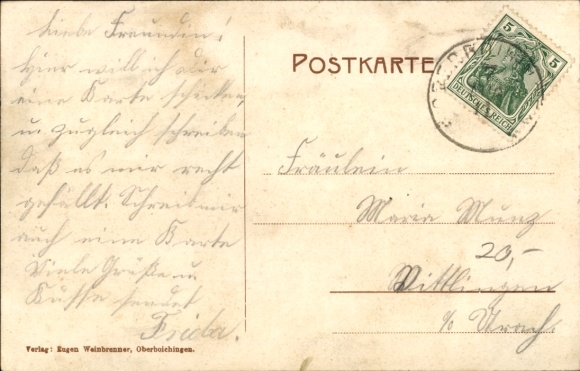 Liebe Freundin!
Hier will ich dir
eine Karte schicken,
u. zugleich schreiben
daß es mir recht
gefällt. Schreib mir
auch eine Karte
Viele Grüße u
Küsse sendet
Frieda.
Verlag: Eugen Weinbrenner, Oberboichingen.
POSTKARTE
5 5
DEUTSCHES REICH
Fräulein
Maria Munz
20,-
Wittlingen
% Urach.